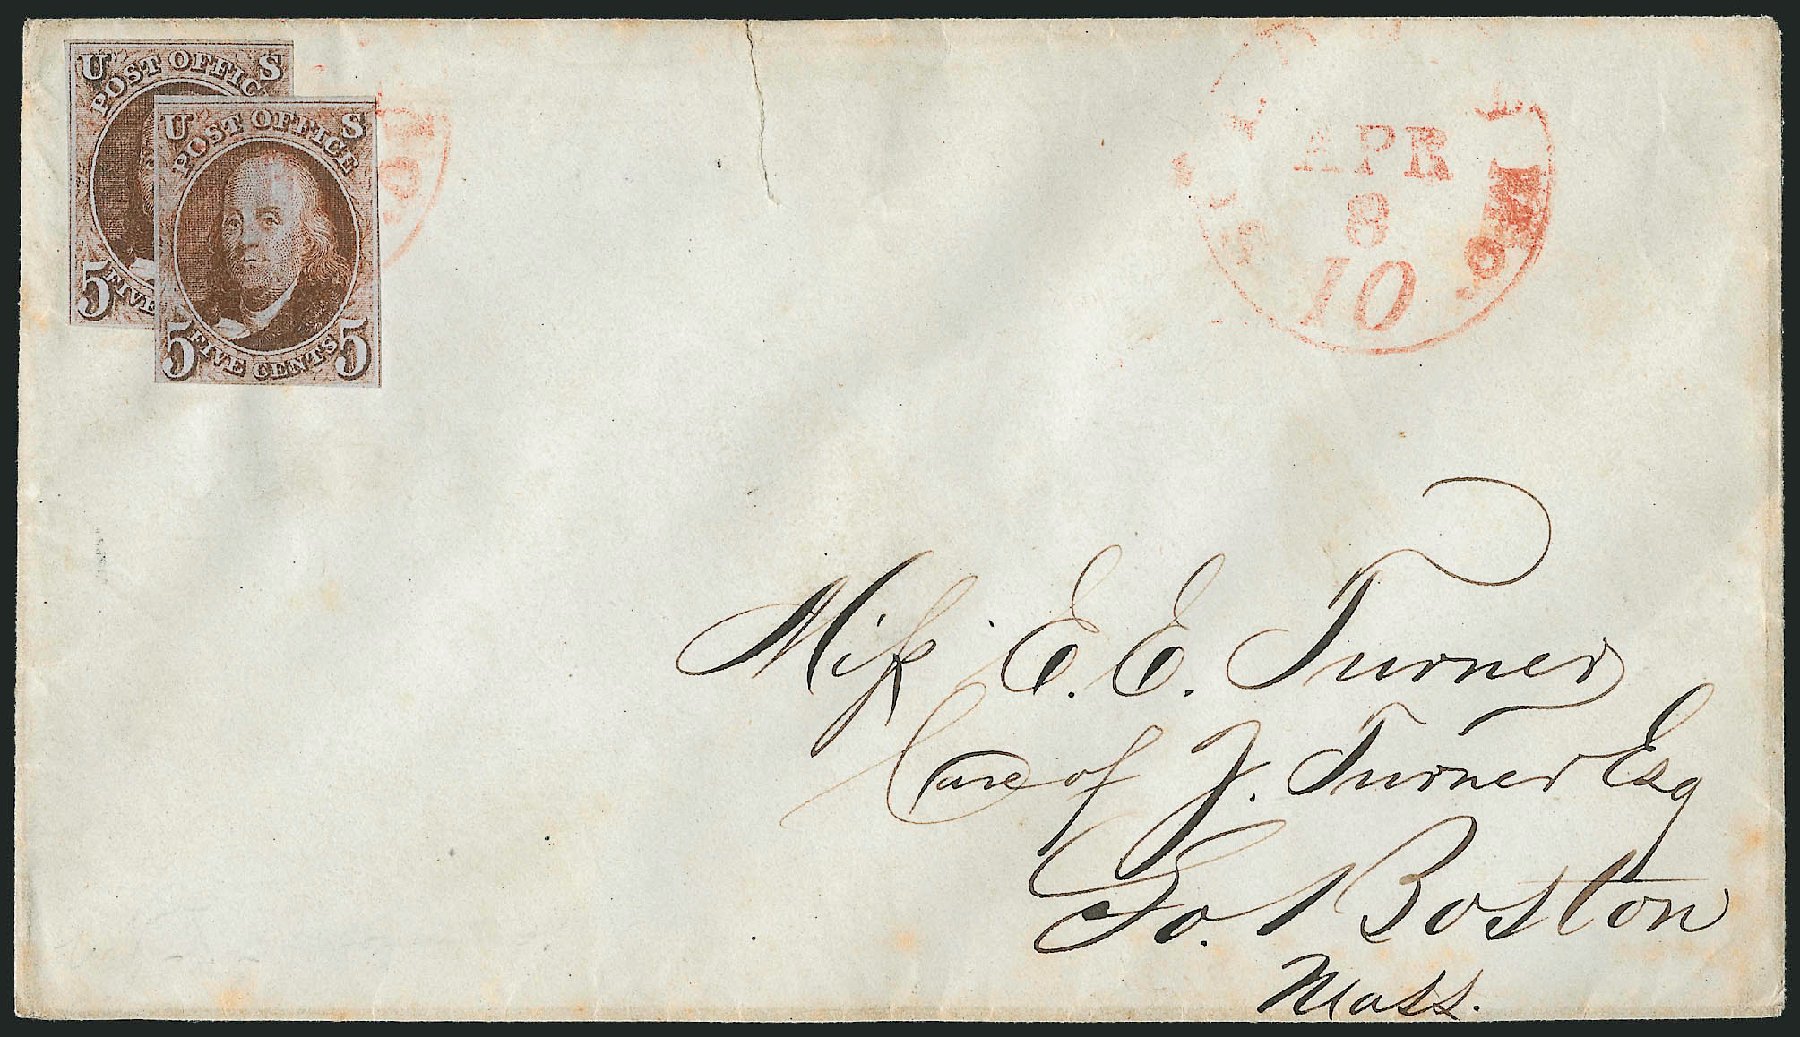 U S
POST OFFIC
5
FIVE
U S
POST OFFICE
5 FIVE CENTS 5
ST. LOUIS Mo.
APR
8
10
Miss E. E. Turner
Care of J. Turner Esq
So. Boston
Mass.